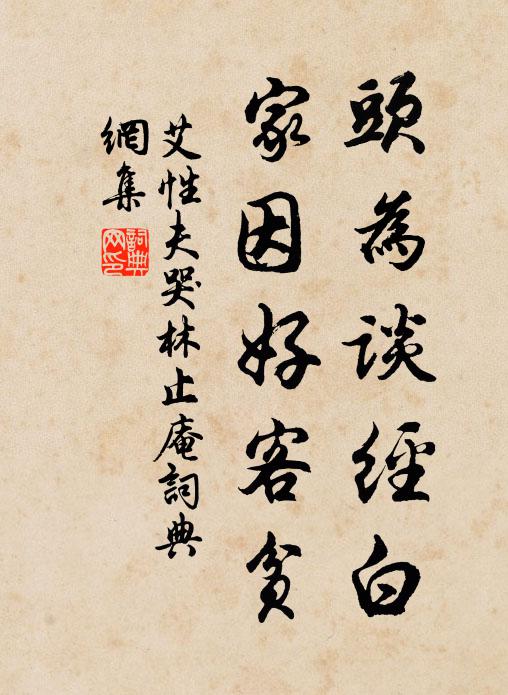 頭為談經白
家因好客貧
艾性夫哭林止庵詞典
網集
詞典
网印